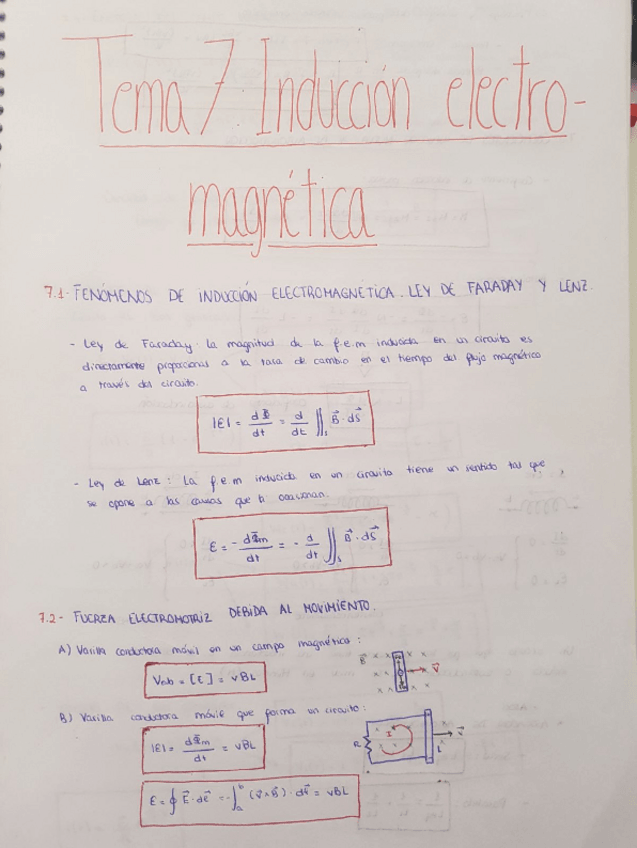 Tema 7. Inducción electro-
magnética
7.1- FENÓMENOS DE INDUCCIÓN ELECTROMAGNETICA. LEY DE FARADAY Y LENZ.
- Ley de Faraday: la magnitud de la f.e.m inducida en un circuito es
directamente proporcional a la tasa de cambio en el tiempo del flujo magnético
a través del circuito.
|Ɛ| = dΦ/dt = d/dt ∬s B⃗ · dS⃗
- Ley de Lenz: La f.e.m inducida en un circuito tiene un sentido tal que
se opone a las causas que la ocasionan.
Ɛ = - dΦm/dt = - d/dt ∬s B⃗ · dS⃗
7.2- FUERZA ELECTROMOTRIZ DEBIDA AL MOVIMIENTO.
A) Varilla conductora móvil en un campo magnético:
Vab = [Ɛ] = vBL
B⃗ v⃗
B) Varilla conductora móvil que forma un circuito:
|Ɛ| = dΦm/dt = vBL
R I L v⃗